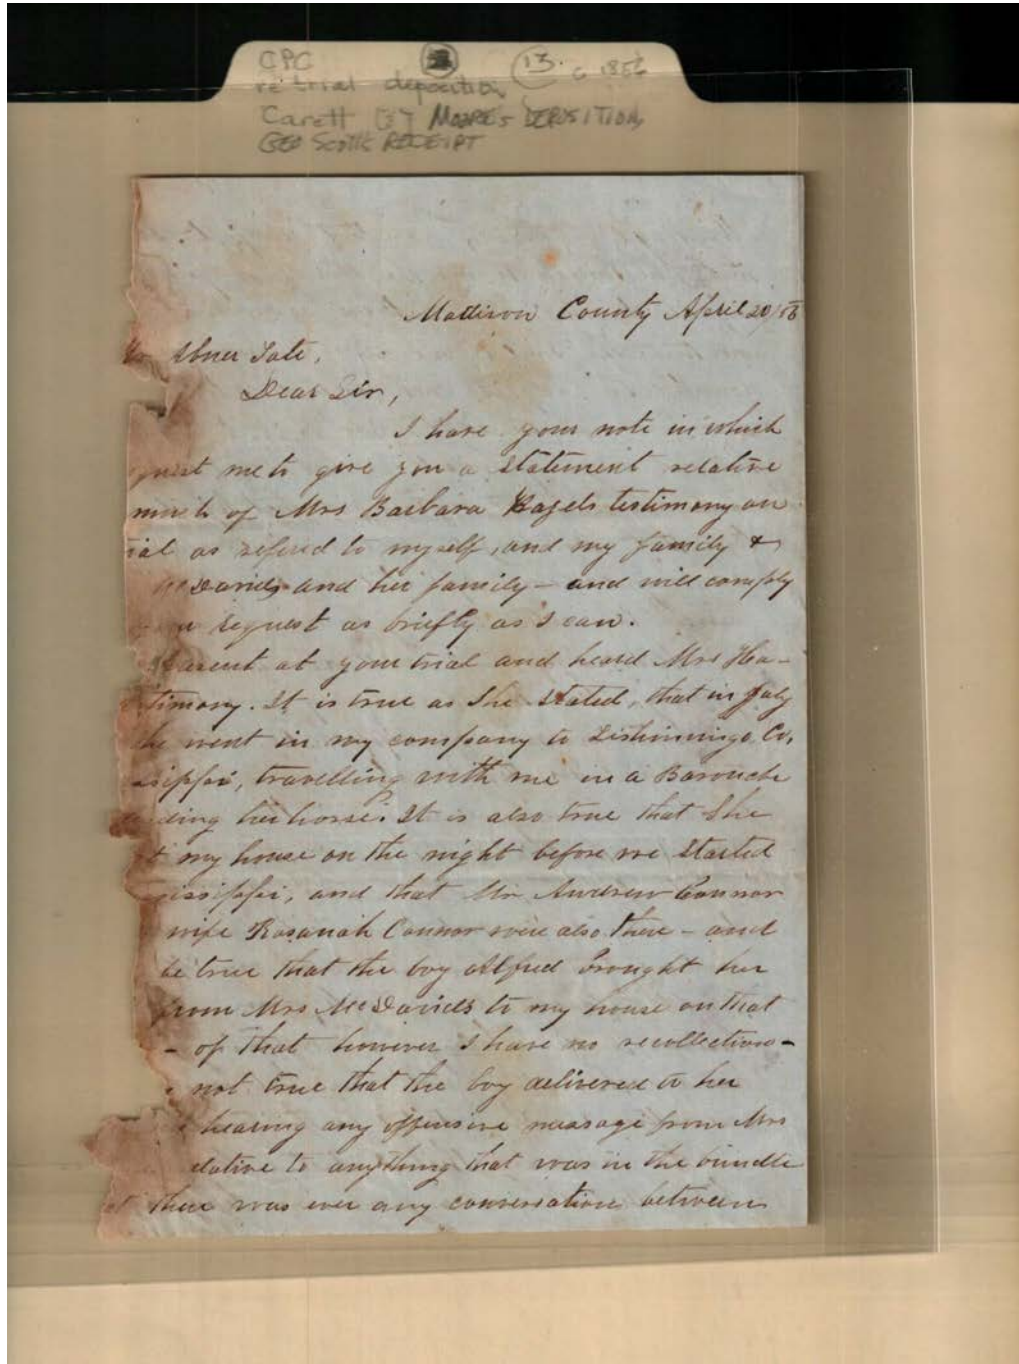 CPC 13. c 1856
re trial deposition
Carett MOORE'S DEPOSITION,
GEO SCOTT'S RECEIPT
Madison County April 20/56
Abner Tate,
Dear Sir,
I have your note in which
quest me to give you a statement relative
much of Mrs Barbara Hagels testimony on
ial as refered to myself, and my family &
McDavids and her family - and will comply
request as briefly as I can.
at your trial and heard Mrs Ha-
timony. It is true as She stated, that in July
he went in my company to Tishimingo Co,
sippi, travelling with me in a Barouche
ding her horse. It is also true that She
at my house on the night before we started
issippi, and that Mr Andrew Connor
wife Rosanah Connor were also there - and
be true that the boy Alfred brought her
from Mrs McDavids to my house on that
- of that however I have no recollection -
not true that the boy delivered to her
hearing any offensive message from Mrs
elative to anything that was in the bundle
at there was ever any conversation between